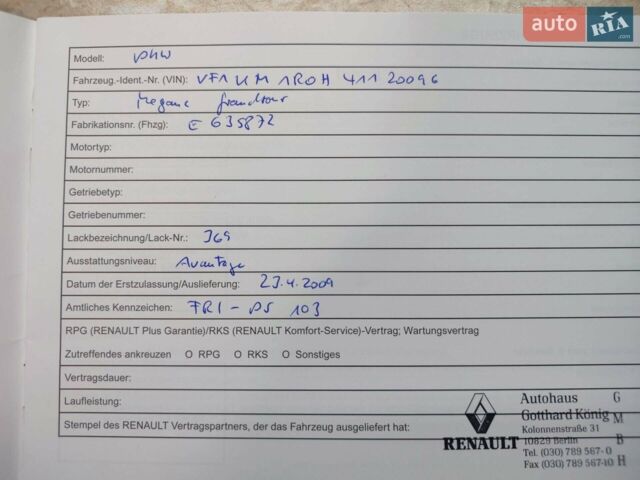 auto RIA.com
Modell: PKW
Fahrzeug.-Ident.-Nr. (VIN): VF1KM1R0H41120096
Typ: Megane Grandtour
Fabrikationsnr. (Fhzg): E 635872
Motortyp:
Motornummer:
Getriebetyp:
Getriebenummer:
Lackbezeichnung/Lack-Nr.: J69
Ausstattungsniveau: Avantage
Datum der Erstzulassung/Auslieferung: 23.4.2009
Amtliches Kennzeichen: FRI-PS 103
RPG (RENAULT Plus Garantie)/RKS (RENAULT Komfort-Service)-Vertrag; Wartungsvertrag
Zutreffendes ankreuzen O RPG O RKS O Sonstiges
Vertragsdauer:
Laufleistung:
Stempel des RENAULT Vertragspartners, der das Fahrzeug ausgeliefert hat:
RENAULT
Autohaus G
Gotthard König M
Kolonnenstraße 31
10829 Berlin B
Tel. (030) 789 567-0
Fax (030) 789 567-10 H